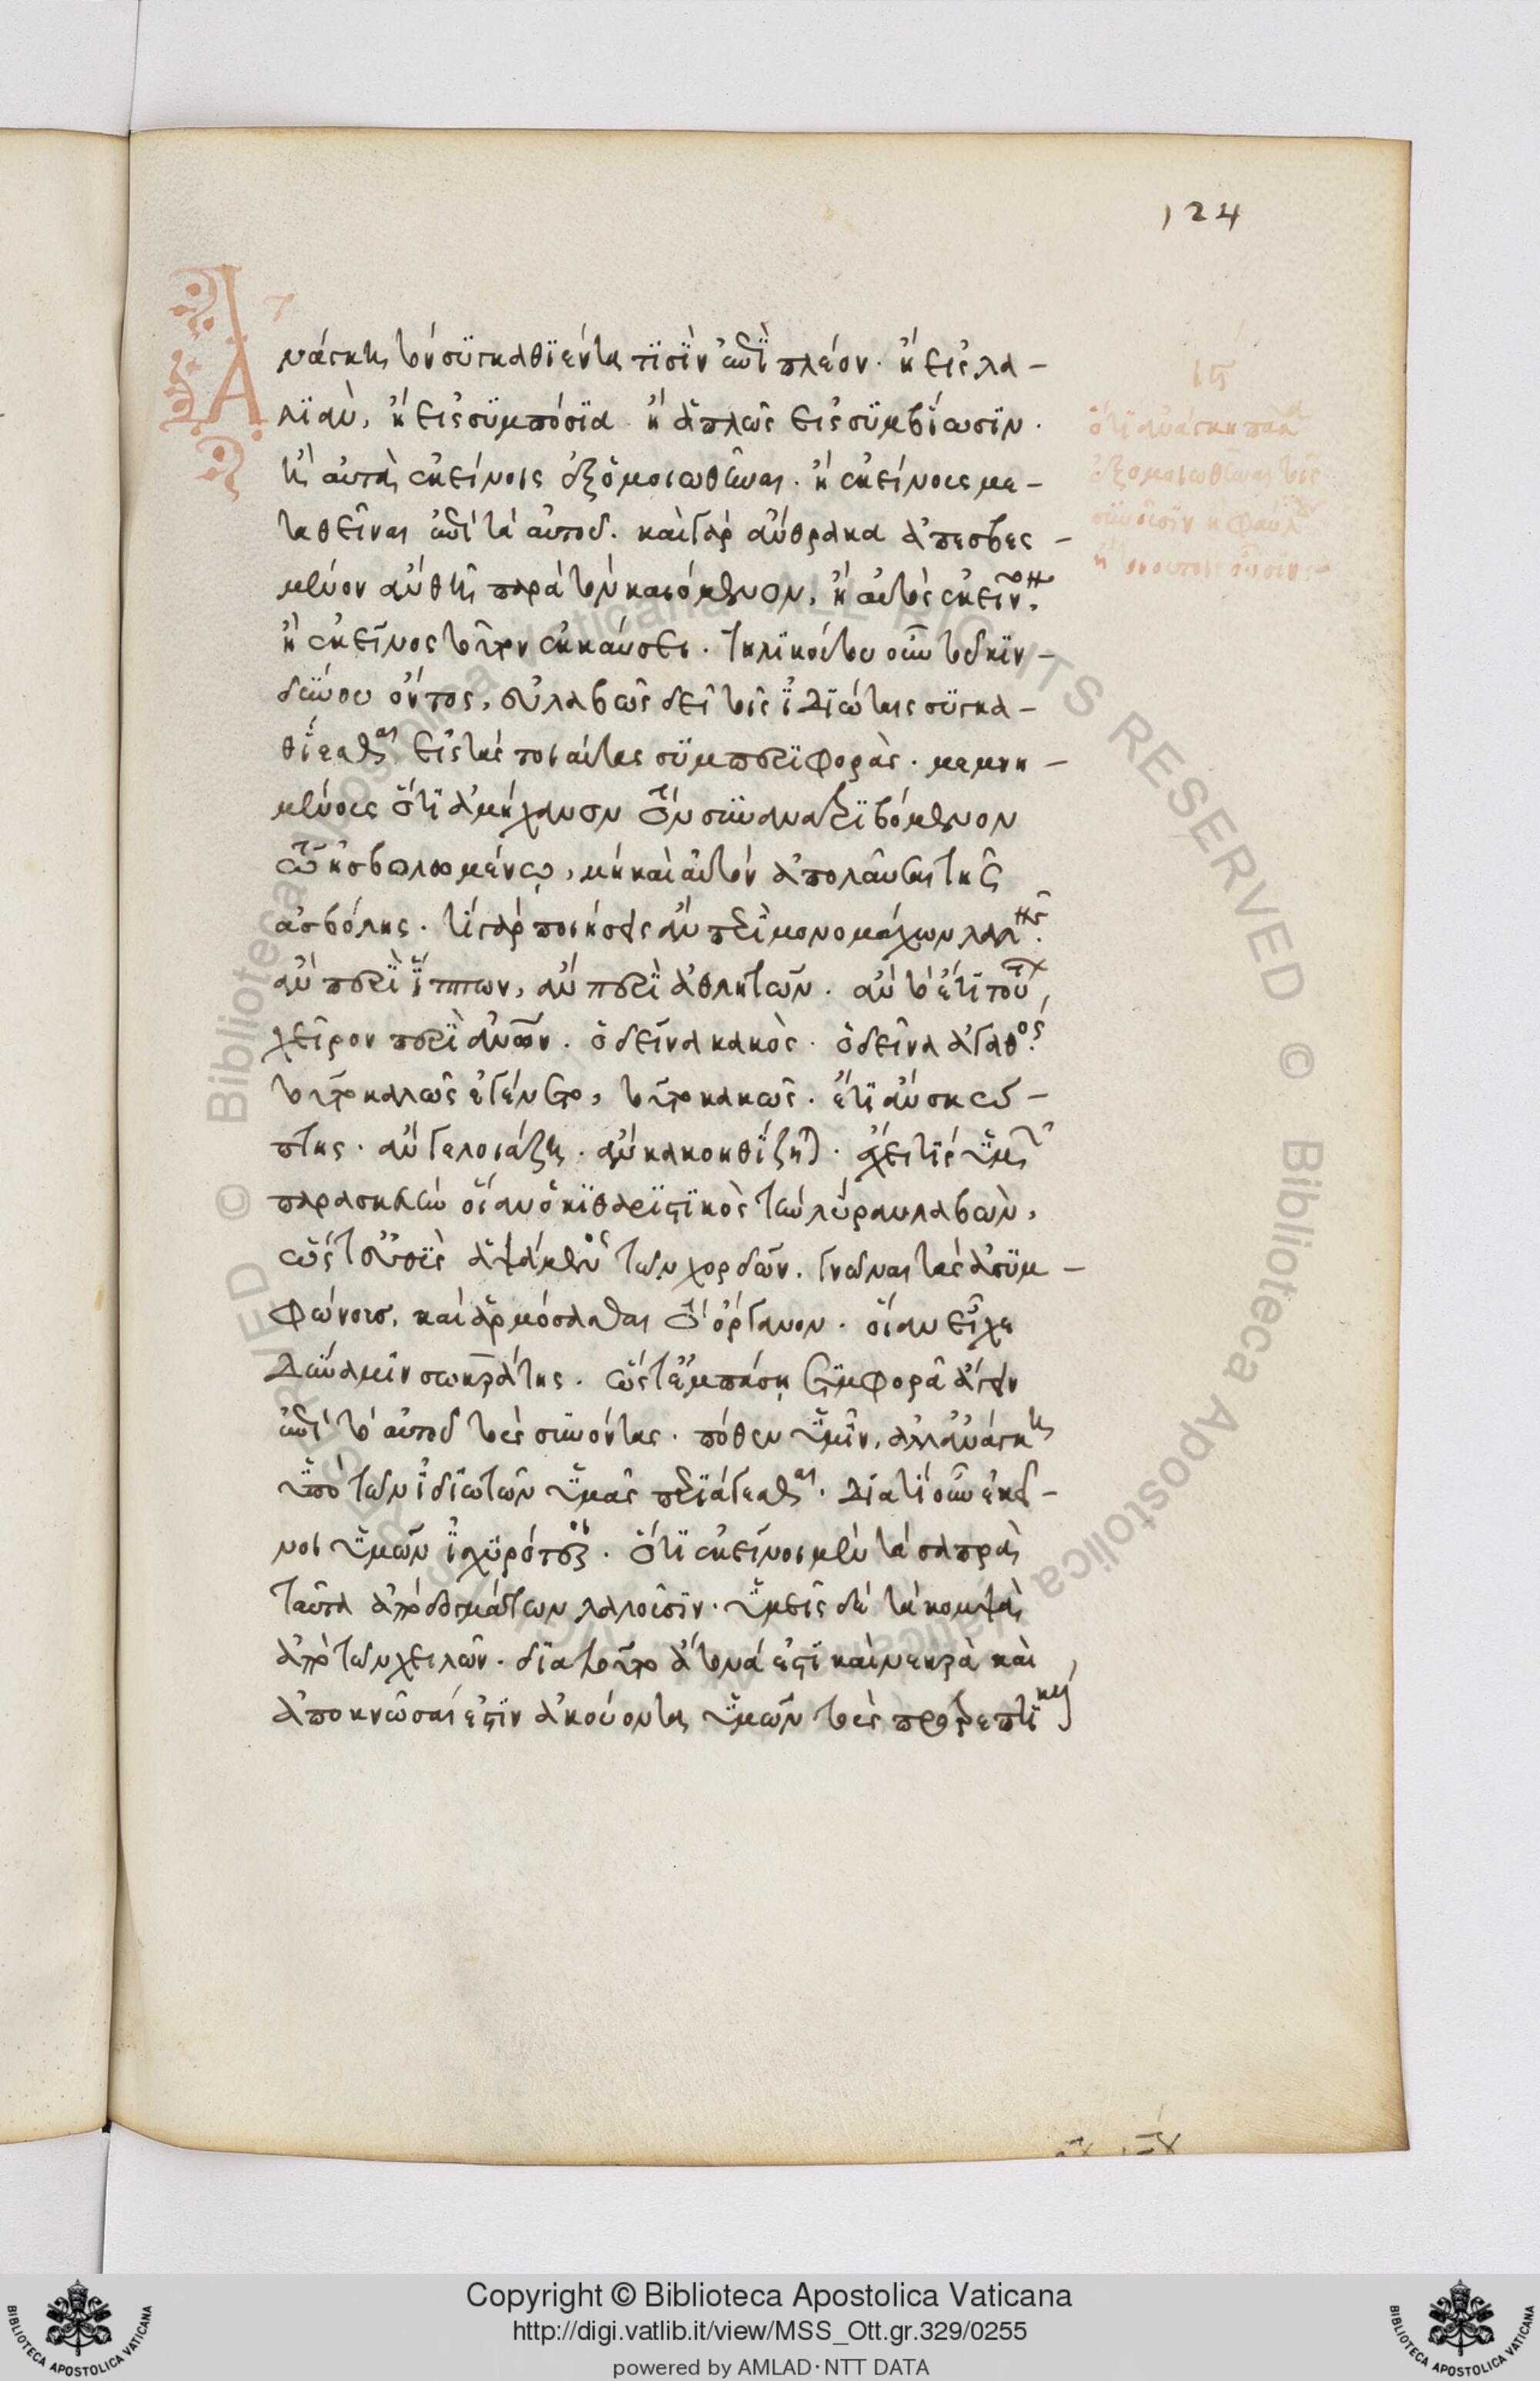 124
Ανάγκη τὸν συγκαθιέντα τισὶν ἐπὶ πλέον. ἢ εἰς λα-
λιὰν, ἢ εἰς συμπόσια. ἢ ἁπλῶς εἰς συμβίωσιν.
ἢ αὐτὸν ἐκείνοις ἐξομοιωθῆναι. ἢ ἐκείνους με-
ταθεῖναι ἐπὶ τὰ αὑτοῦ. καὶ γὰρ ἄνθρακα ἀπεσβεσ-
μένον ἂν θῇ παρὰ τὸν καιόμενον, ἢ αὐτὸς ἐκεῖνον.
ἢ ἐκεῖνος τοῦτον ἐκκαύσει. τηλικούτου οὖν τοῦ κιν-
δύνου ὄντος, εὐλαβῶς δεῖ τοῖς ἰδιώταις συγκα-
θίεσθαι εἰς τὰς τοιαύτας συμπεριφοράς. μεμνη-
μένους ὅτι ἀμήχανον τὸν συνανατριβόμενον
τῷ ἠσβολωμένῳ, μὴ καὶ αὐτὸν ἀπολαῦσαι τῆς
ἀσβόλης. τί γὰρ ποιήσεις ἂν περὶ μονομάχων λαλῇς.
ἂν περὶ ἵππων, ἂν περὶ ἀθλητῶν. ἂν τὸ ἔτι τούτων
χεῖρον περὶ ἀνθρώπων. ὁ δεῖνα κακὸς. ὁ δεῖνα ἀγαθός.
τοῦτο καλῶς ἐγένετο, τοῦτο κακῶς. ἔτι ἂν σκώ-
πτῃς. ἂν γελοιάζῃ. ἂν κακοηθίζηται. ἔχει τὶς ὑμῶν
παρασκευὴν οἵαν ὁ κιθαριστικὸς τὴν λύραν λαβὼν,
ὥστ' εὐθὺς ἁψάμενος τῶν χορδῶν. γνῶναι τὰς ἀσυμ-
φώνους, καὶ ἁρμόσασθαι τὸ ὄργανον. οἵαν εἶχε
δύναμιν σωκράτης. ὥστ' ἐμ πάσῃ συμφορᾷ ἄγειν
ἐπὶ τὸ αὑτοῦ τοὺς συνόντας. πόθεν ὑμῖν, ἀλλ' ἀνάγκη
ὑπὸ τῶν ἰδιωτῶν ὑμᾶς περιάγεσθαι. διατί οὖν ἐκεῖ-
νοι ὑμῶν ἰσχυρότεροι. ὅτι ἐκεῖνοι μὲν τὰ σαπρὰ
ταῦτα ἀπὸ δογμάτων λαλοῦσιν. ὑμεῖς δὲ τὰ κομψὰ
ἀπὸ τῶν χειλῶν. διατοῦτο ἄτονά ἐστι καὶ νεκρὰ καὶ
ἀποκνῶσαί ἐστιν ἀκούοντα ὑμῶν τοὺς προτρεπτικοὺς
Copyright © Biblioteca Apostolica Vaticana
http://digi.vatlib.it/view/MSS_Ott.gr.329/0255
powered by AMLAD·NTT DATA